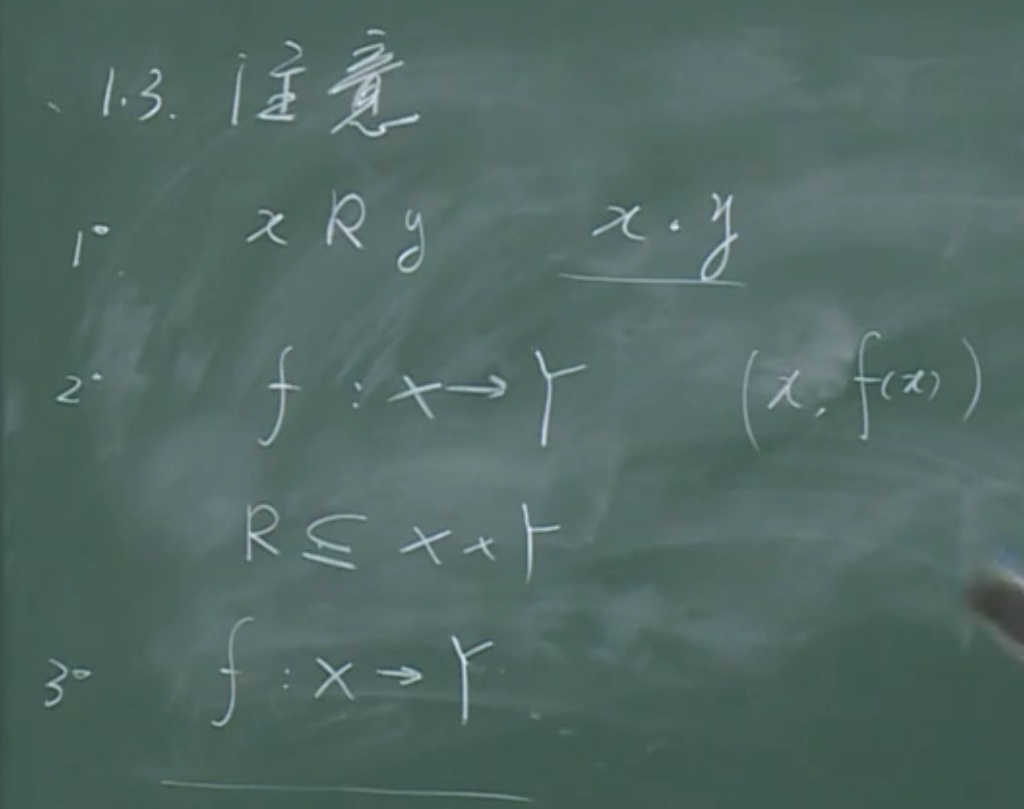 1.3. 注意
1° x R y x·y
2° f : X → Y (x, f(x))
R ⊆ X × Y
3° f : X → Y